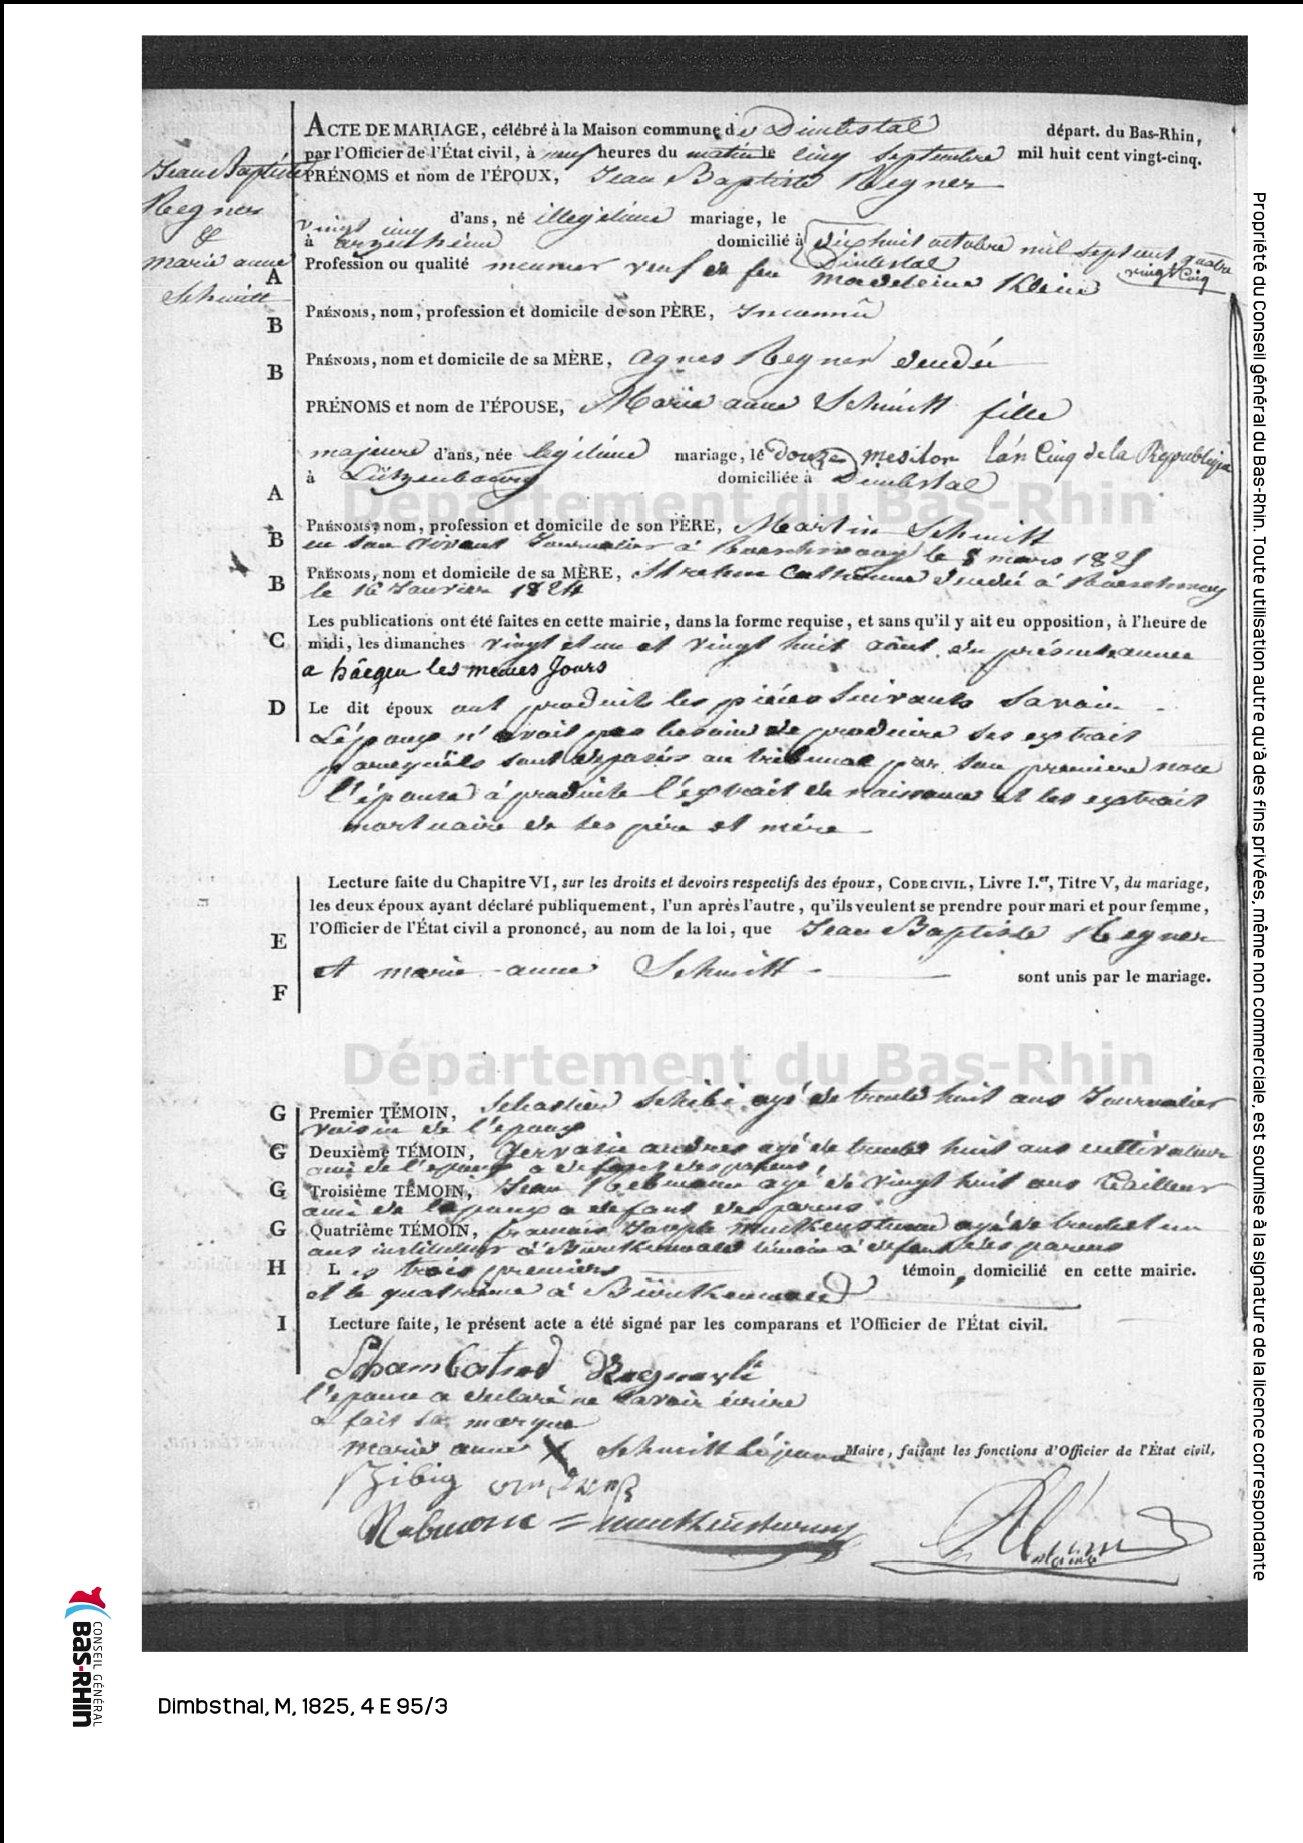 ACTE DE MARIAGE, célébré à la Maison commune de Dimbstal départ. du Bas-Rhin,
par l'Officier de l'État civil, à neuf heures du matin le cinq septembre mil huit cent vingt-cinq.
Jean Baptiste
PRÉNOMS et nom de l'ÉPOUX, Jean Baptiste Regner
Regner
&
marie anne
Schmitt
vingt cinq d'ans, né illegitime mariage, le
à domicilié à dixhuit octobre mil sept cent quatre
vingt Cinq
Dimbstal
A Profession ou qualité meunier veuf de feu madeleine Klein
B PRÉNOMS, nom, profession et domicile de son PÈRE, Inconnû
B PRÉNOMS, nom et domicile de sa MÈRE, agnes Regner
PRÉNOMS et nom de l'ÉPOUSE, Marie anne Schmitt fille
majeure d'ans, née legitime mariage, le douze mesitor l'an Cinq de la Republique
à Lützenbourg domiciliée à Dimbstal
A
B PRÉNOMS, nom, profession et domicile de son PÈRE, Martin Schmitt
en son vivant Journalier à le 8 mars
B PRÉNOMS, nom et domicile de sa MÈRE, Catherine à
le 16 Janvier 1824
Les publications ont été faites en cette mairie, dans la forme requise, et sans qu'il y ait eu opposition, à l'heure de
C midi, les dimanches vingt et un et vingt huit aout du présente année
a häegen les memes Jours
D Le dit époux ont produit les pieces suivants savoir
L'époux n'avoit pas besoin de produire ses extrait
parcequ'ils sont deposés au tribunal par son premiere noce
l'épouse à produite l'extrait de naissance et les extrait
mortuaire de ses père et mère
Lecture faite du Chapitre VI, sur les droits et devoirs respectifs des époux, CODE CIVIL, Livre I.er, Titre V, du mariage,
les deux époux ayant déclaré publiquement, l'un après l'autre, qu'ils veulent se prendre pour mari et pour femme,
E l'Officier de l'État civil a prononcé, au nom de la loi, que Jean Baptiste Regner
F et marie anne Schmitt sont unis par le mariage.
G Premier TÉMOIN, Sebastien agé de trente huit ans Journalier
voisin de l'epoux
G Deuxième TÉMOIN, Gervasie andres agé de trente huit ans cultivateur
ami de l'epoux a defaut des parens,
G Troisième TÉMOIN, Jean Rebmann agé de vingt huit ans tailleur
ami de l'epoux a defaut des parens
G Quatrième TÉMOIN, francois Joseph agé de trente et un
ans instituteur à témoin à defaut des parens
H Les trois premiers témoin, domicilié en cette mairie.
et le quatrième à
I Lecture faite, le présent acte a été signé par les comparans et l'Officier de l'État civil.
l'epouse a declaré ne savoir écrire
a fait sa marque
marie anne X Schmitt l'épouse Maire, faisant les fonctions d'Officier de l'État civil.
Département du Bas-Rhin
Département du Bas-Rhin
Département du Bas-Rhin
Propriété du Conseil général du Bas-Rhin. Toute utilisation autre qu'à des fins privées, même non commerciale, est soumise à la signature de la licence correspondante
CONSEIL GÉNÉRAL
BAS-RHIN
Dimbsthal, M, 1825, 4 E 95/3